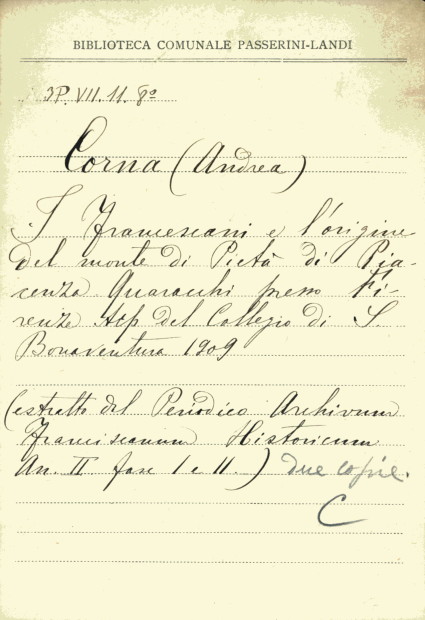 BIBLIOTECA COMUNALE PASSERINI-LANDI
3P. VII. 11. 8º
Corna (Andrea)
I Francescani e l'origine
del monte di Pietà di Pia-
cenza Quaracchi presso Fi-
renze Tip del Collegio di S.
Bonaventura 1909
(estratto dal Periodico Archivum
Franciscanum Historicum
An. II fasc I e II.) due copie.
C